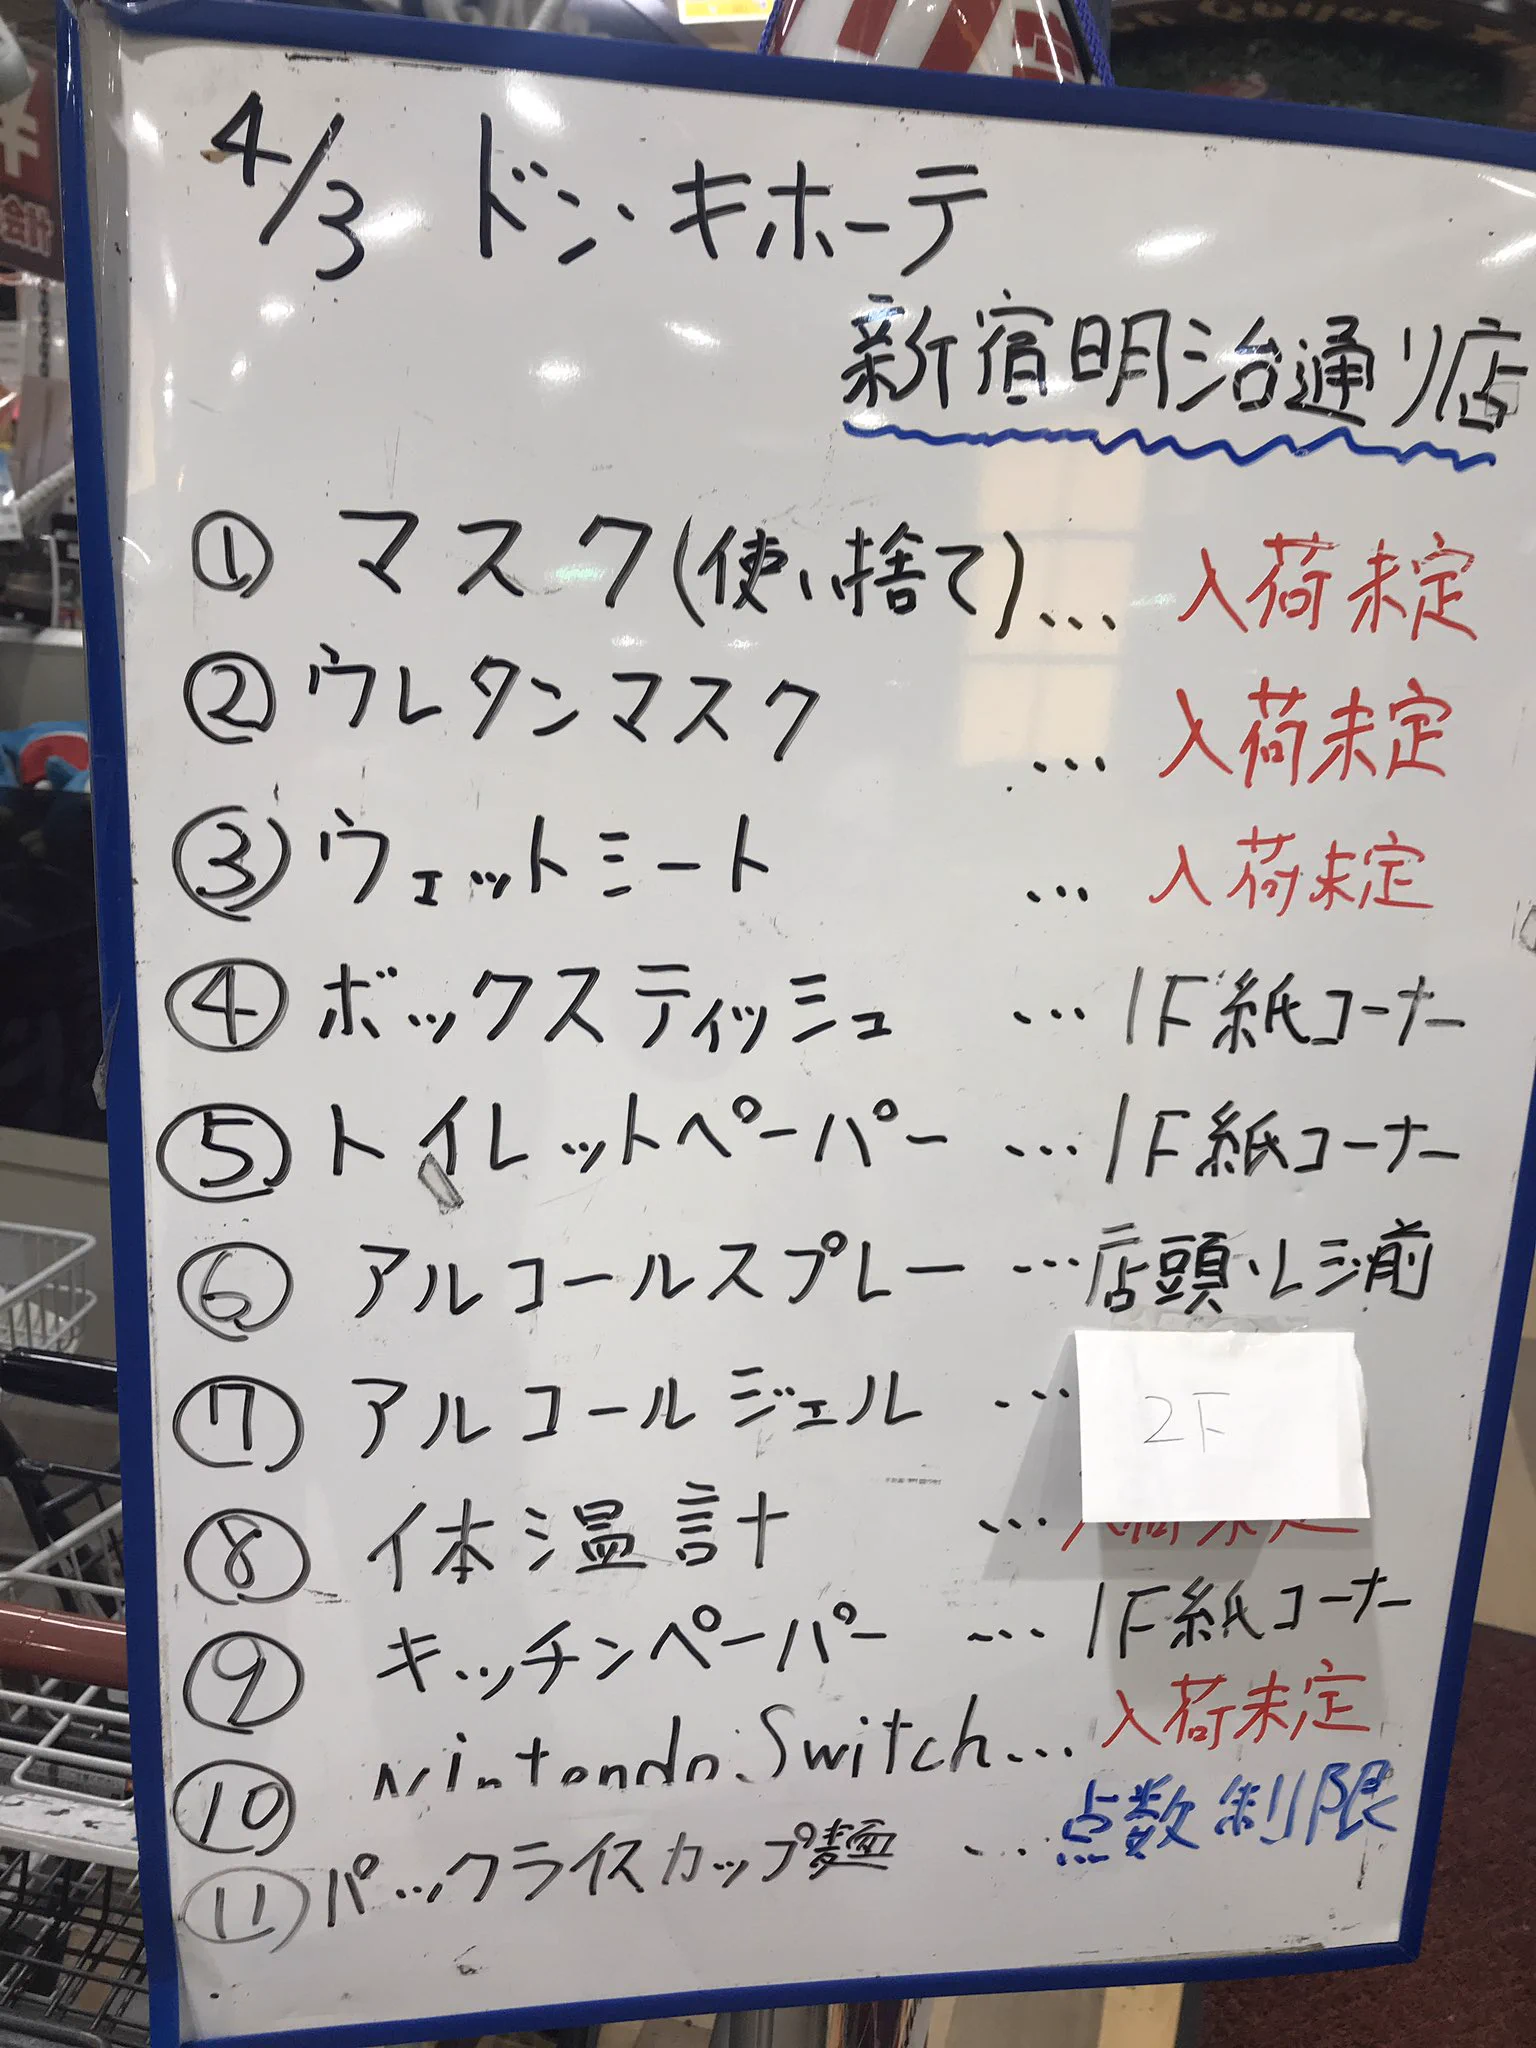 4/3 ドン・キホーテ
新宿明治通り店
① マスク(使い捨て)… 入荷未定
② ウレタンマスク … 入荷未定
③ ウェットシート … 入荷未定
④ ボックスティッシュ … 1F紙コーナー
⑤ トイレットペーパー … 1F紙コーナー
⑥ アルコールスプレー … 店頭・レジ前
⑦ アルコールジェル … 2F
⑧ 体温計 … 入荷未定
⑨ キッチンペーパー … 1F紙コーナー
⑩ Nintendo Switch… 入荷未定
⑪ パックライスカップ麺 … 点数制限